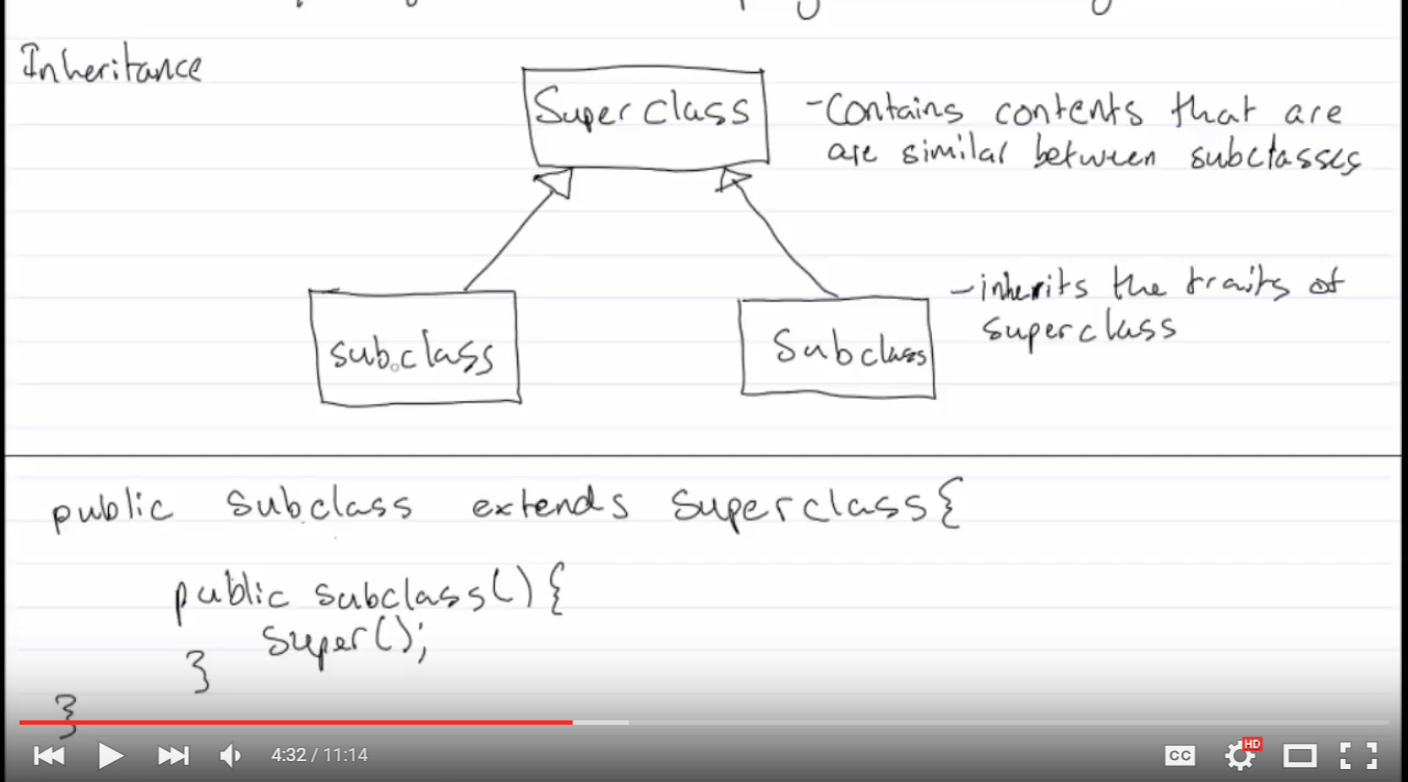 Inheritance
Superclass
-Contains contents that are
are similar between subclasses
subclass
Subclass
-inherits the traits of
superclass
public subclass extends superclass{
public subclass(){
super();
}
}
4:32 / 11:14
CC
HD